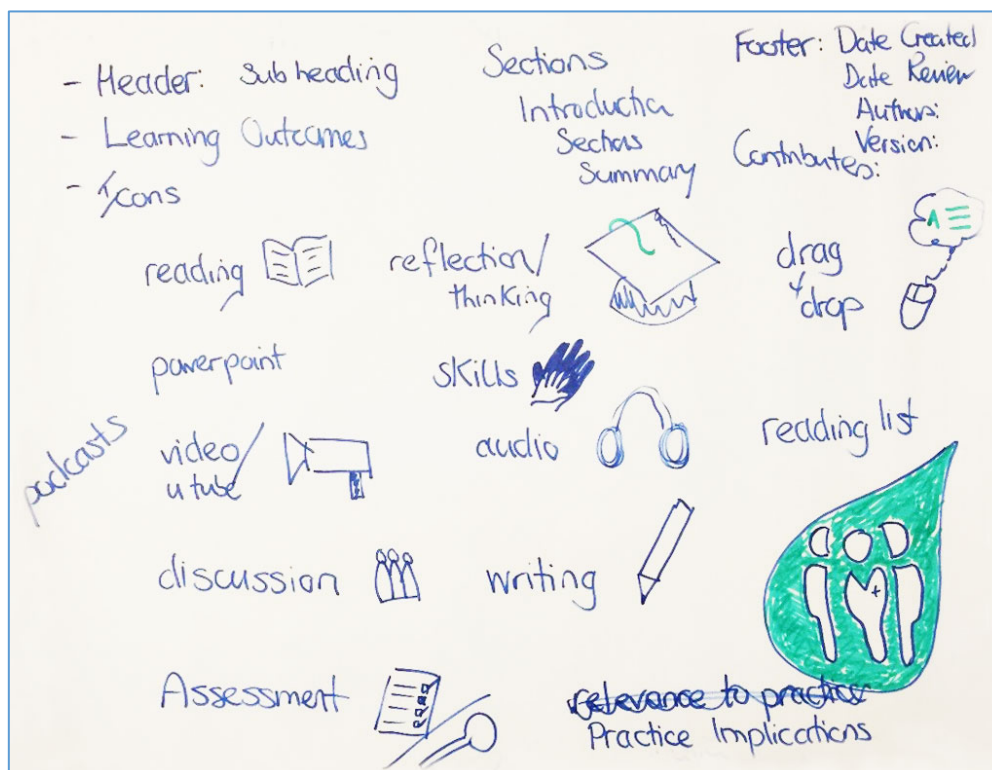 - Header: Sub heading
- Learning Outcomes
- Icons
Sections
Introductia
Sections
Summary
Footer: Date Created
Date Review
Authors:
Version:
Contributers:
reading
reflection/
thinking
drag
& drop
powerpoint
skills
podcasts
video/
u tube
audio
reading list
discussion
writing
Assessment
relevance to practice
Practice Implications